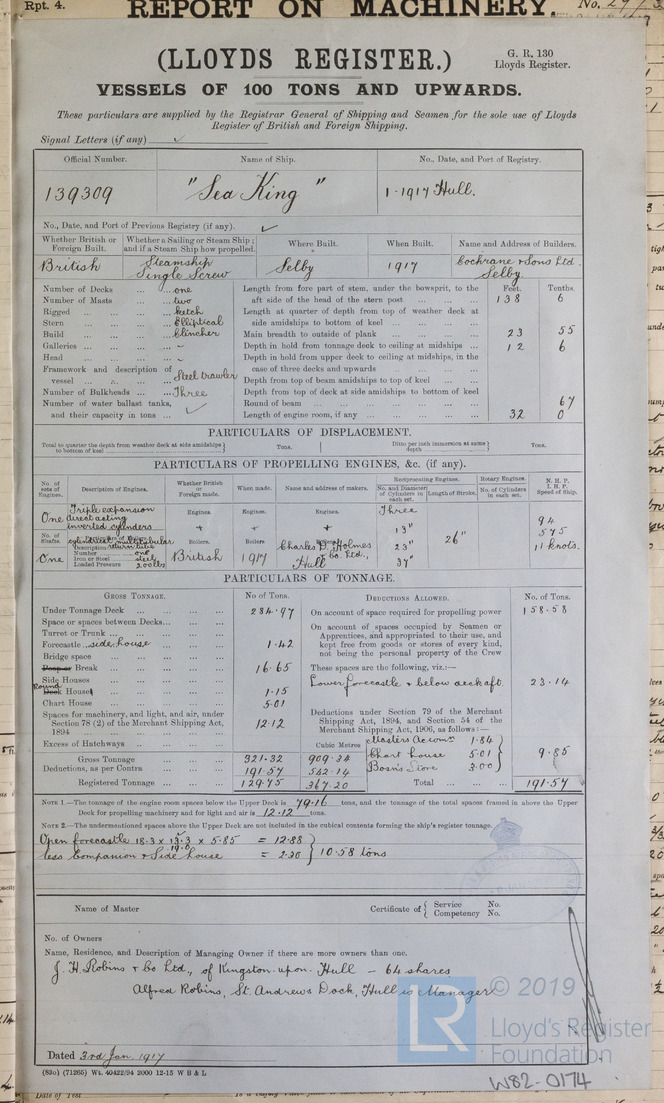 Rpt. 4.
REPORT ON MACHINERY.
No.
(LLOYDS REGISTER.)
G. R. 130
Lloyds Register.
VESSELS OF 100 TONS AND UPWARDS.
These particulars are supplied by the Registrar General of Shipping and Seamen for the sole use of Lloyds
Register of British and Foreign Shipping.
Signal Letters (if any) ✓
Official Number. Name of Ship. No., Date, and Port of Registry.
139309 "Sea King" 1-1917 Hull.
No., Date, and Port of Previous Registry (if any). ✓
Whether British or Foreign Built. Whether a Sailing or Steam Ship; and if a Steam Ship how propelled. Where Built. When Built. Name and Address of Builders.
British Steamship Single Screw Selby 1917 Cochrane & Sons Ltd. Selby
Feet. Tenths.
Number of Decks one Length from fore part of stem, under the bowsprit, to the
Number of Masts two aft side of the head of the stern post 138 6
Rigged Ketch Length at quarter of depth from top of weather deck at
Stern Elliptical side amidships to bottom of keel
Build Clincher Main breadth to outside of plank 23 55
Galleries - Depth in hold from tonnage deck to ceiling at midships 12 6
Head - Depth in hold from upper deck to ceiling at midships, in the
Framework and description of case of three decks and upwards
vessel Steel trawler Depth from top of beam amidships to top of keel
Number of Bulkheads Three Depth from top of deck at side amidships to bottom of keel
Number of water ballast tanks, Round of beam 67
and their capacity in tons ✓ Length of engine room, if any 32 0
PARTICULARS OF DISPLACEMENT.
Total to quarter the depth from weather deck at side amidships to bottom of keel Tons. Ditto per inch immersion at same depth Tons.
PARTICULARS OF PROPELLING ENGINES, &c. (if any).
No. of sets of Engines. Description of Engines. Whether British or Foreign made. When made. Name and address of makers. Reciprocating Engines. Rotary Engines. N. H. P.
No. and Diameter of Cylinders in each set. Length of Stroke. No. of Cylinders in each set. I. H. P. Speed of Ship.
One Triple expansion direct acting inverted cylinders Engines. Engines. Engines. Three
13" 26" 94
No. of Shafts. Boilers Boilers 23" 575
One Number one Iron or Steel steel Loaded Pressure 200 lbs British 1917 Charles D. Holmes & Co. Ltd., Hull 37" 11 knots.
PARTICULARS OF TONNAGE.
GROSS TONNAGE. No of Tons. DEDUCTIONS ALLOWED. No. of Tons.
Under Tonnage Deck 284.97 On account of space required for propelling power 158.58
Space or spaces between Decks On account of spaces occupied by Seamen or
Turret or Trunk Apprentices, and appropriated to their use, and
Forecastle side house 1.42 kept free from goods or stores of every kind,
Bridge space not being the personal property of the Crew
Poop or Break 16.65 These spaces are the following, viz.:—
Side Houses Lower forecastle & below deck aft 23.14
Round Deck Houses 1.15
Chart House 5.01
Spaces for machinery, and light, and air, under Section 78 (2) of the Merchant Shipping Act, 1894 12.12
Deductions under Section 79 of the Merchant Shipping Act, 1894, and Section 54 of the Merchant Shipping Act, 1906, as follows:—
Excess of Hatchways Cubic Metres Masters Accom: 1.84
Gross Tonnage 321.32 909.34 Chart house 5.01 9.85
Deductions, as per Contra 191.57 542.14 Bosn's Store 3.00
Registered Tonnage 129.75 367.20 Total 191.57
NOTE 1.—The tonnage of the engine room spaces below the Upper Deck is 79.16 tons, and the tonnage of the total spaces framed in above the Upper
Deck for propelling machinery and for light and air is 12.12 tons.
NOTE 2.—The undermentioned spaces above the Upper Deck are not included in the cubical contents forming the ship's register tonnage.
Open forecastle 18.3 x 13.3 x 5.85 = 12.88
less Companion & Side house = 2.30 } 10.58 tons
Name of Master Certificate of { Service No. Competency No.
No. of Owners
Name, Residence, and Description of Managing Owner if there are more owners than one.
J. H. Robins & Co Ltd., of Kingston-upon-Hull — 64 shares
Alfred Robins, St. Andrews Dock, Hull is Manager
© 2019
LR
Lloyd's Register
Foundation
Dated 3rd Jan. 1917
(83o) (71265) Wt. 40422/94 2000 12-15 W B & L
W82-0174
Date of Test